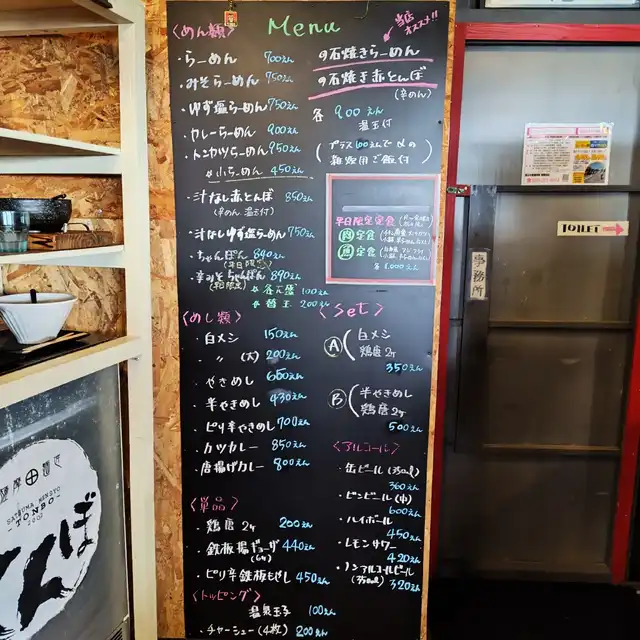 Menu
〈めん類〉
・らーめん 700えん
・みそらーめん 750えん
・ゆず塩らーめん 750えん
・カレーらーめん 900えん
・トンカツらーめん 950えん
小らーめん 450えん
・汁なし赤とんぼ 850えん
(辛めん 温玉付)
・汁なしゆず塩らーめん 750えん
・ちゃんぽん 890えん
(平日限定)
・辛みそちゃんぽん 890えん
(平日限定)
替玉 200えん
当店オススメ!!
石焼きらーめん
石焼き赤とんぼ
(辛めん)
各 900えん
温玉付
プラス100えんで〆の
雑炊用ご飯付
平日限定定食
肉定食
魚定食
各 1,000えん
〈めし類〉
・白メシ 150えん
・〃 (大) 200えん
・やきめし 650えん
・半やきめし 430えん
・ピリ辛やきめし 700えん
・カツカレー 850えん
・唐揚げカレー 800えん
〈Set〉
A 白メシ
鶏唐2ケ
350えん
B 半やきめし
鶏唐2ケ
500えん
〈単品〉
・鶏唐2ケ 200えん
・鉄板揚ギョーザ 440えん
・ピリ辛鉄板もやし 450えん
〈トッピング〉
温泉玉子 100えん
・チャーシュー(4枚) 200えん
〈アルコール〉
・缶ビール(350ml)
360えん
・ビンビール(中)
600えん
・ハイボール
450えん
・レモンサワー
420えん
・ノンアルコールビール
(350ml) 320えん
TOILET
事務所
SATSUMA MENSYO
-TONBO-
とんぼ